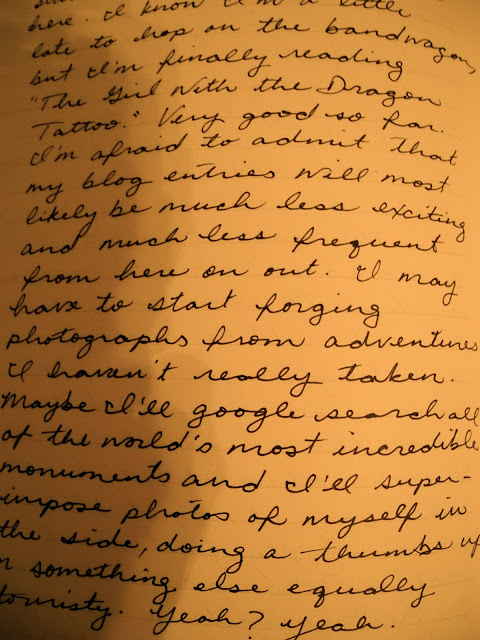 here. I know I'm a little
late to hop on the bandwagon,
but I'm finally reading
"The Girl With the Dragon
Tattoo." Very good so far.
I'm afraid to admit that
my blog entries will most
likely be much less exciting
and much less frequent
from here on out. I may
have to start forging
photographs from adventures
I haven't really taken.
Maybe I'll google search all
of the world's most incredible
monuments and I'll super-
impose photos of myself in
the side, doing a thumbs up
something else equally
touristy. Yeah? Yeah.